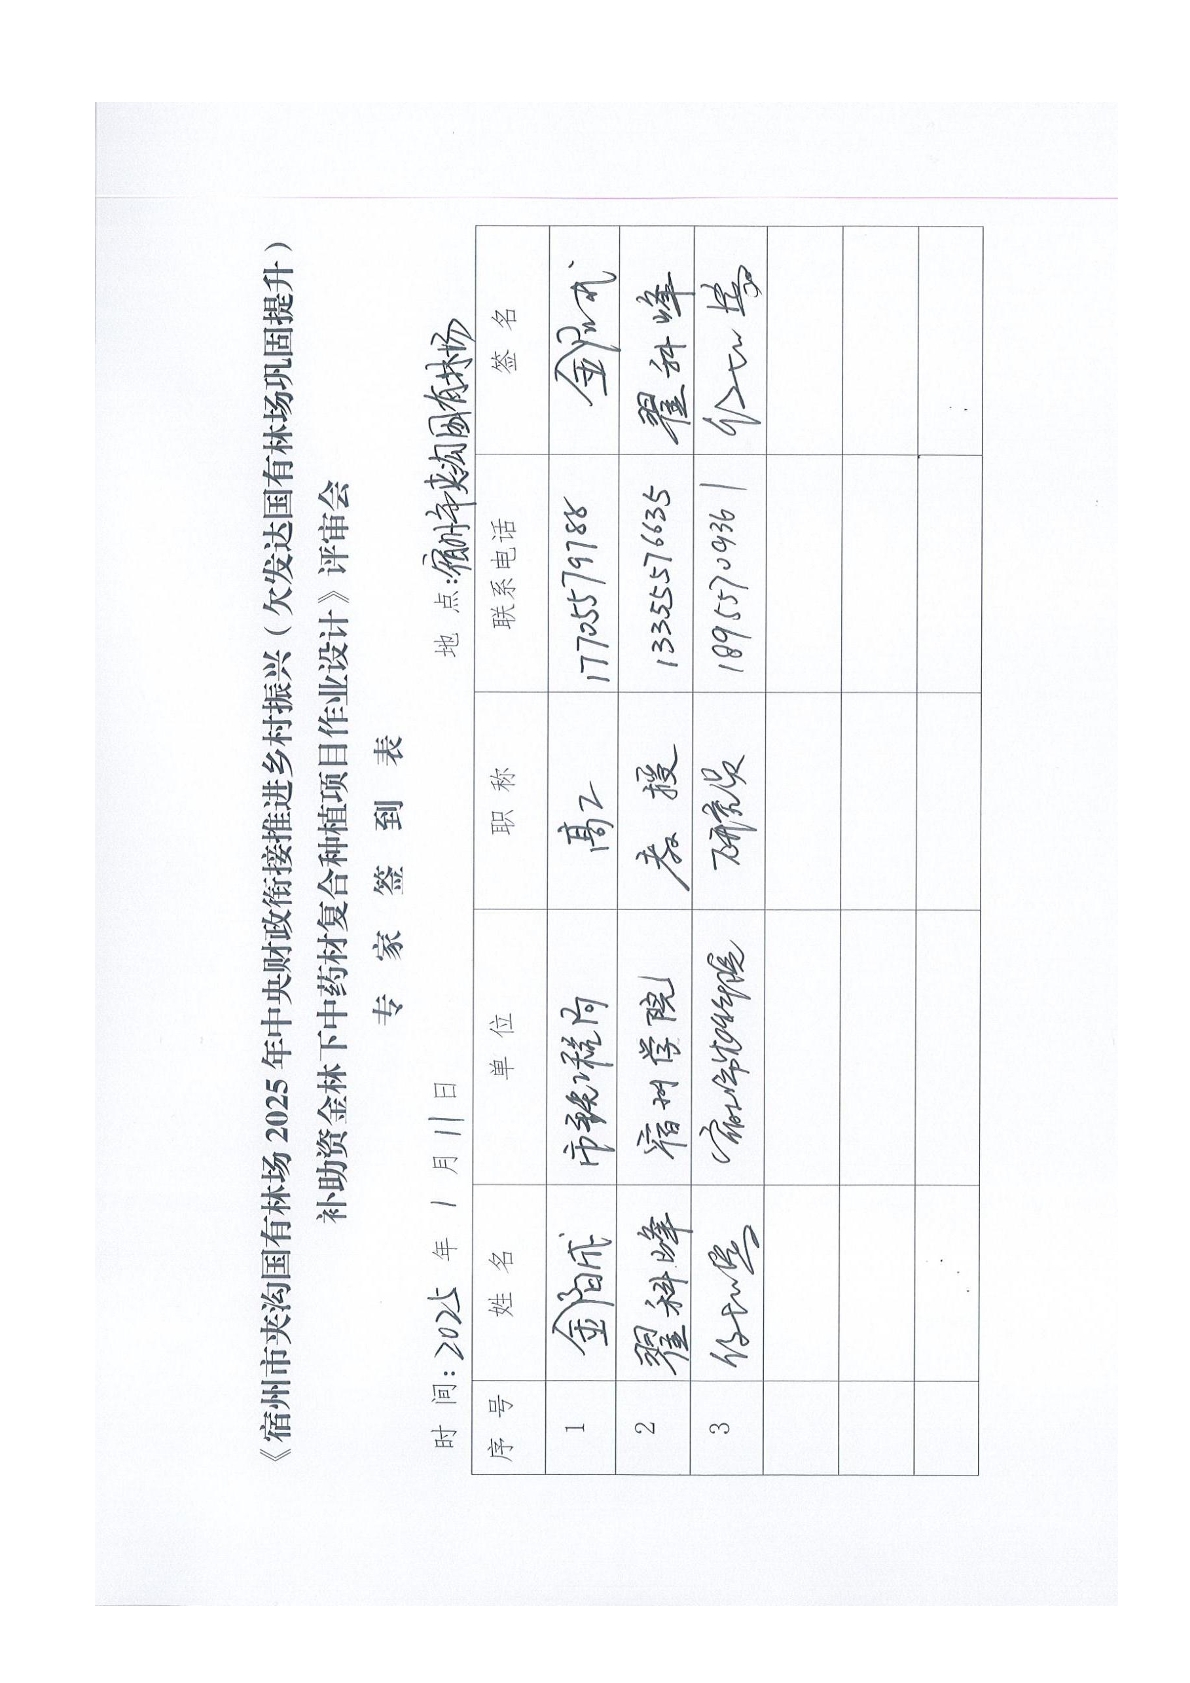 《宿州市夹沟国有林场2025年中央财政衔接推进乡村振兴（欠发达国有林场巩固提升）
补助资金林下中药材复合种植项目作业设计》评审会
专 家 签 到 表
时 间：2025 年 1 月 11 日 地 点：宿州市夹沟国有林场
序 号 姓 名 单 位 职 称 联系电话 签 名
1 高工 17705579788
2 翟科峰 宿州学院 教授 13355576635 翟科峰
3 研究员 18955709361